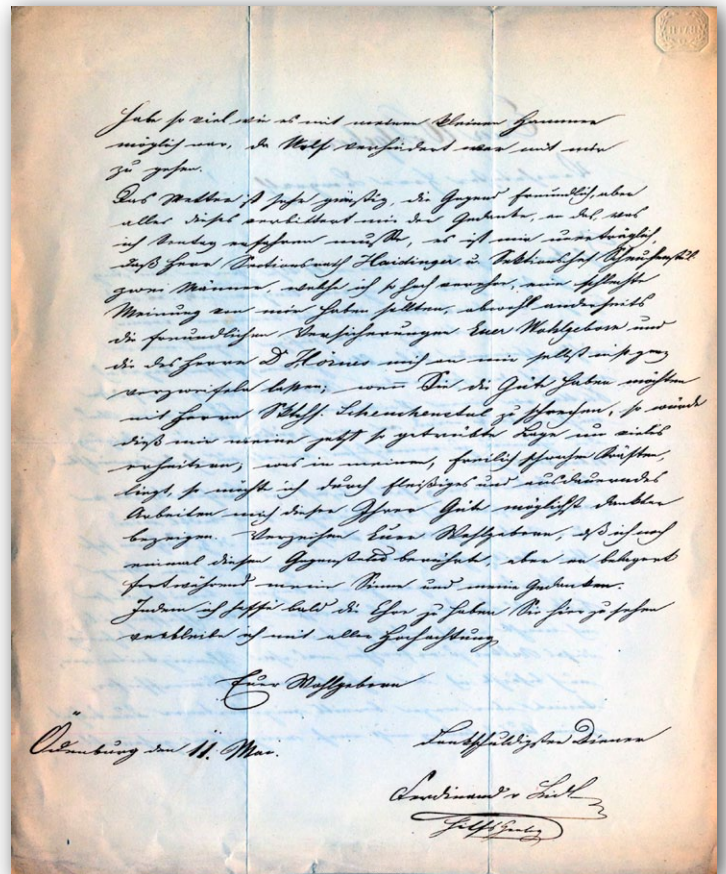 habe so viel wie es mit meinem kleinen Hammer
möglich war, da Wolf verhindert war mit mir
zu gehen.
Das Wetter ist sehr günstig, die Gegend freundlich, aber
alles dieses verbittert mir der Gedanke, an das, was
ich Sontag erfahren mußte, es ist mir unerträglich,
daß Herr Sectionsrath Haidinger u. Sektionschef Scheuchenstul.
zwei Männer, welche ich so hoch verehre, eine schlechte
Meinung von mir haben sollten, obwohl anderseits
die freundlichen Versicherungen Euer Wohlgeborn und
die des Herrn Dr Hörnes mich an mir selbst nicht ganz
verzweifeln laßen; wenn Sie die Güte haben möchten
mit Herrn Sktchf. Scheuchenstul zu sprechen, so würde
dieß mir meine jetzt so getrübte Lage um vieles
erheitern, was in meinen, freilich schwachen Kräften,
liegt, so möcht ich durch fleißiges und ausdauerndes
Arbeiten mich dieser Ihrer Güte möglichst dankbar
bezeigen. Verzeihen Euer Wohlgeborn, daß ich noch
einmal diesen Gegenstand berührt, aber er belagert
fortwährend meine Sinne und meine Gedanken.
Indem ich hoffe bald die Ehre zu haben Sie hier zu sehen
verbleibe ich mit aller Hochachtung
Euer Wohlgeborn
Ödenburg den 11. Mai.
Diener
Ferdinand v Lidl